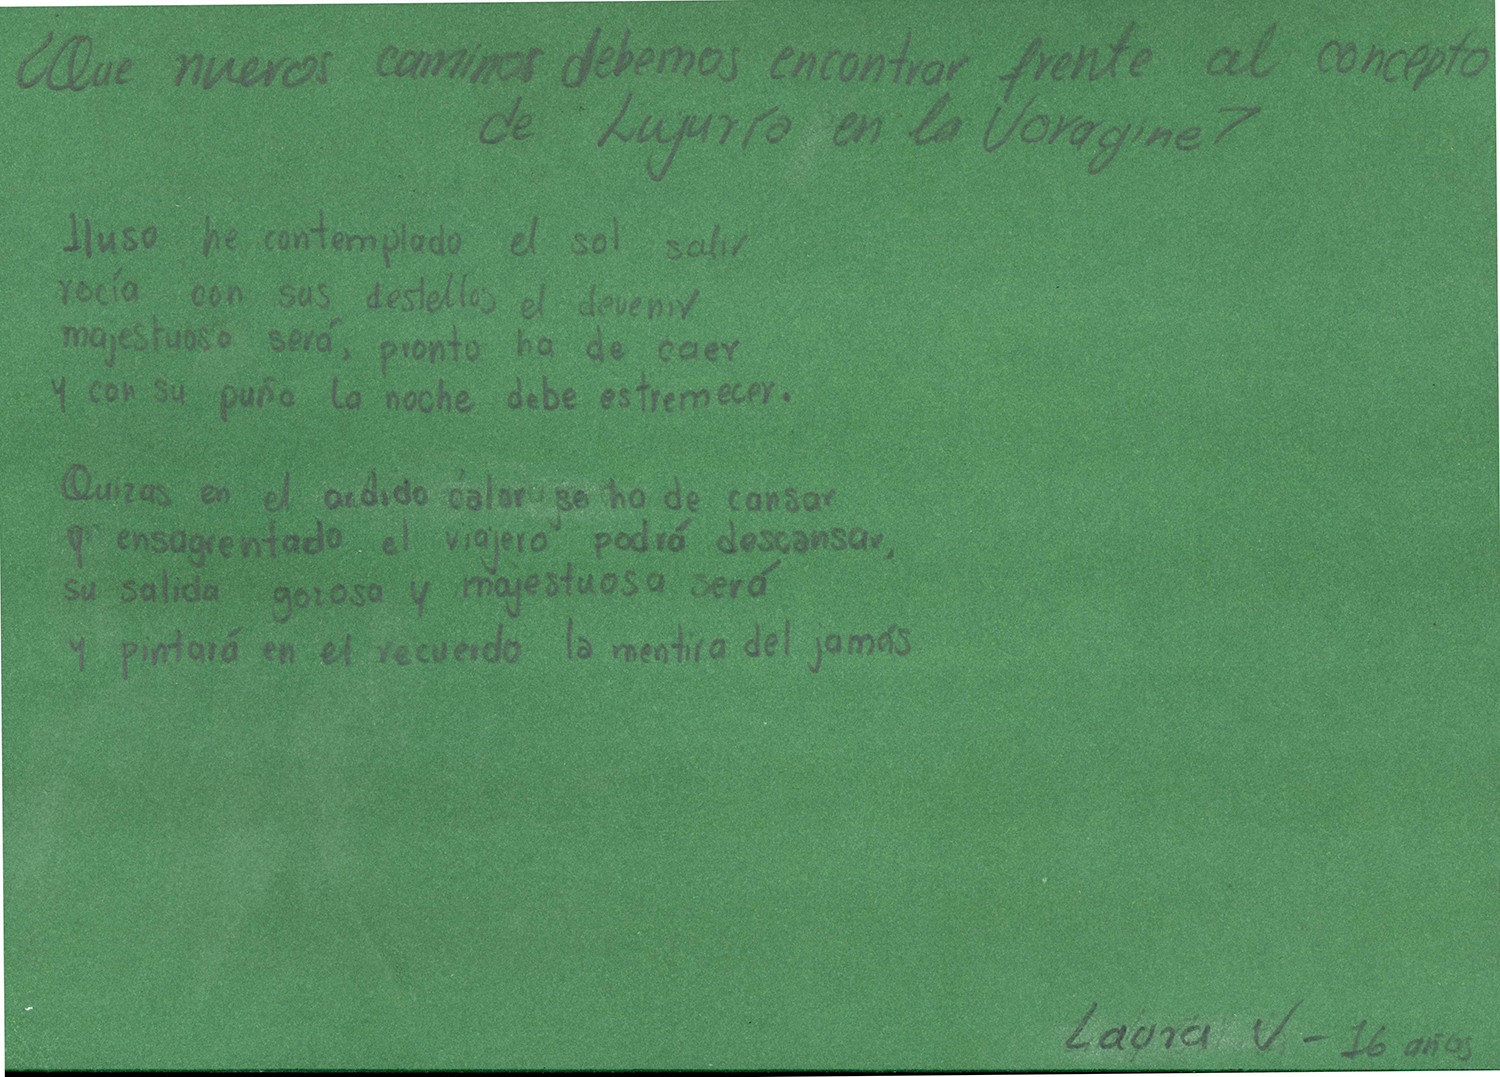 ¿Que nuevos caminos debemos encontrar frente al concepto
de Lujuría en la Voragine?
Iluso he contemplado el sol salir
rocía con sus destellos el devenir
majestuoso será, pronto ha de caer
y con su puño la noche debe estremecer.
Quizas en el ardido calor se ha de cansar
q' ensagrentado el viajero podrá descansar,
su salida gozosa y majestuosa será
y pintará en el recuerdo la mentira del jamás
Laura V - 16 años